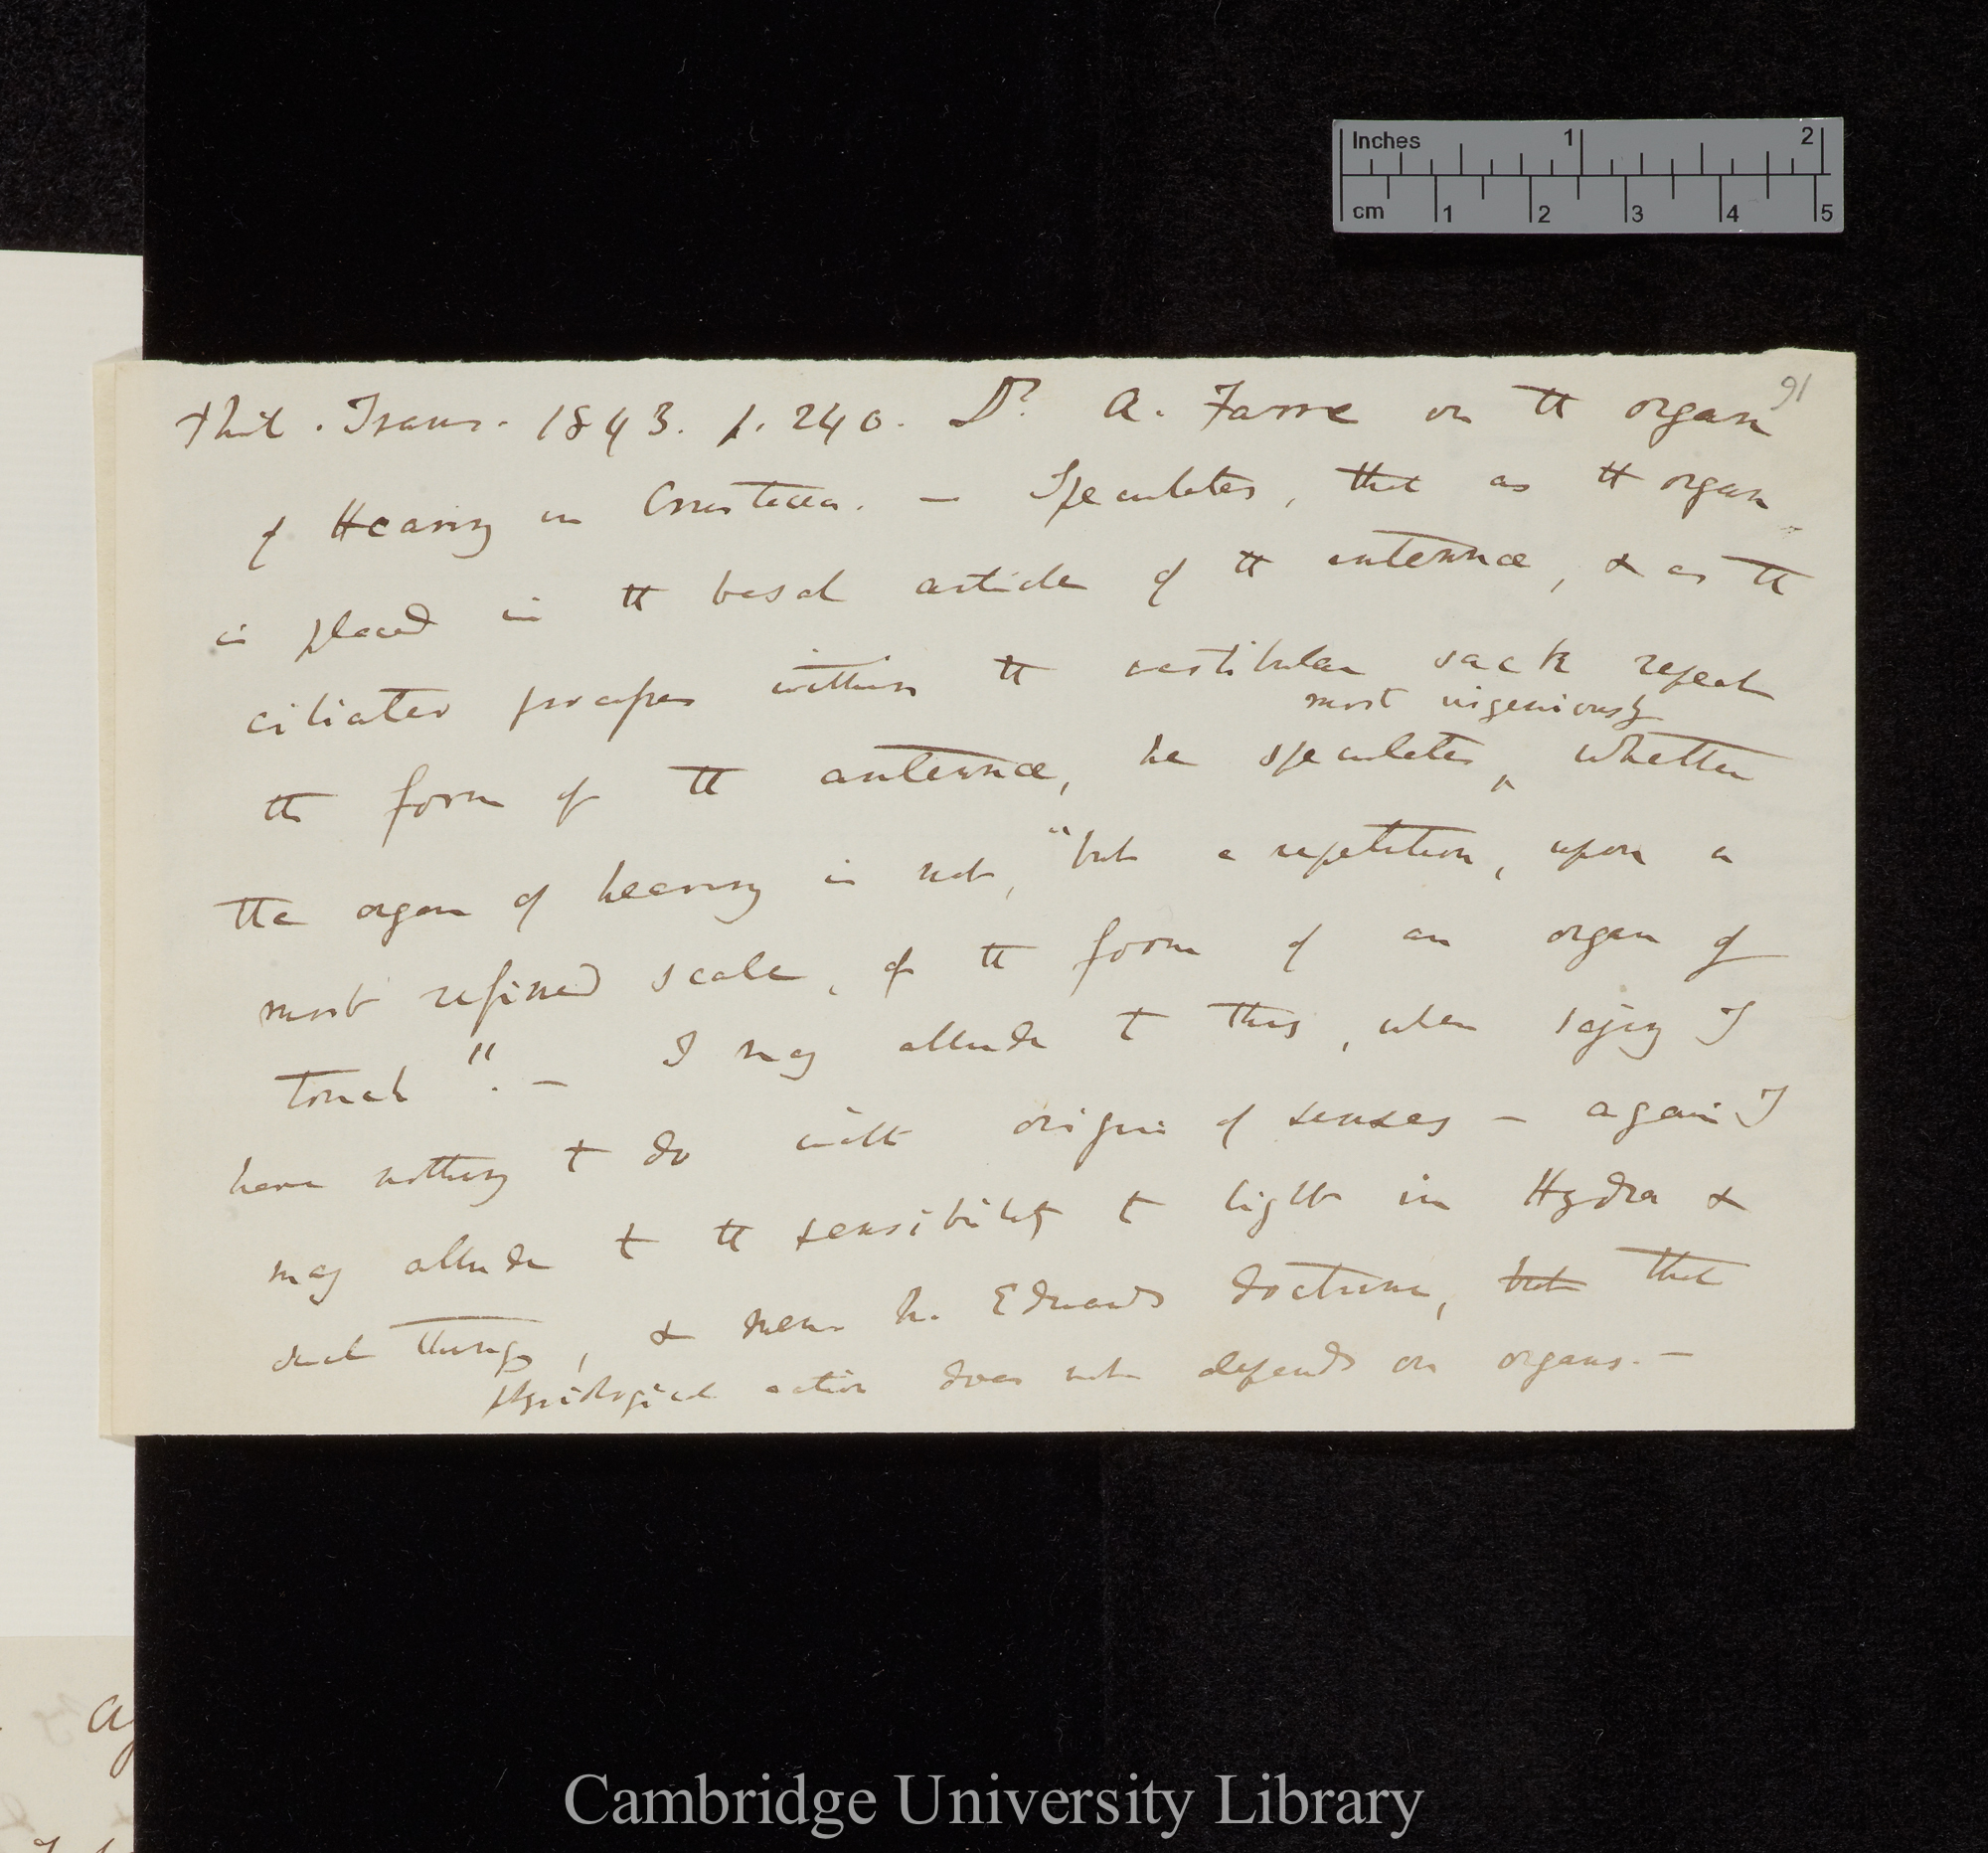 Inches 1 2
cm 1 2 3 4 5
91
Phil. Trans. 1843. p. 240. Dr. A. Farre on the organ
of Hearing in Crustacea. — Speculates, that as the organ
is placed in the basal article of the antennæ, & as the
ciliated processes within the vestibular sack repeat
most ingeniously
the form of the antennæ, he speculates ^ whether
the organ of hearing is not, "but a repetition, upon a
most refined scale, of the form of an organ of
touch". — I may allude to this, when saying I
have nothing to do with origin of senses — again I
may allude to the sensibility to light in Hydra &
such things, & M. Edwards doctrine, but that
physiological action does not depends on organs. —
Cambridge University Library